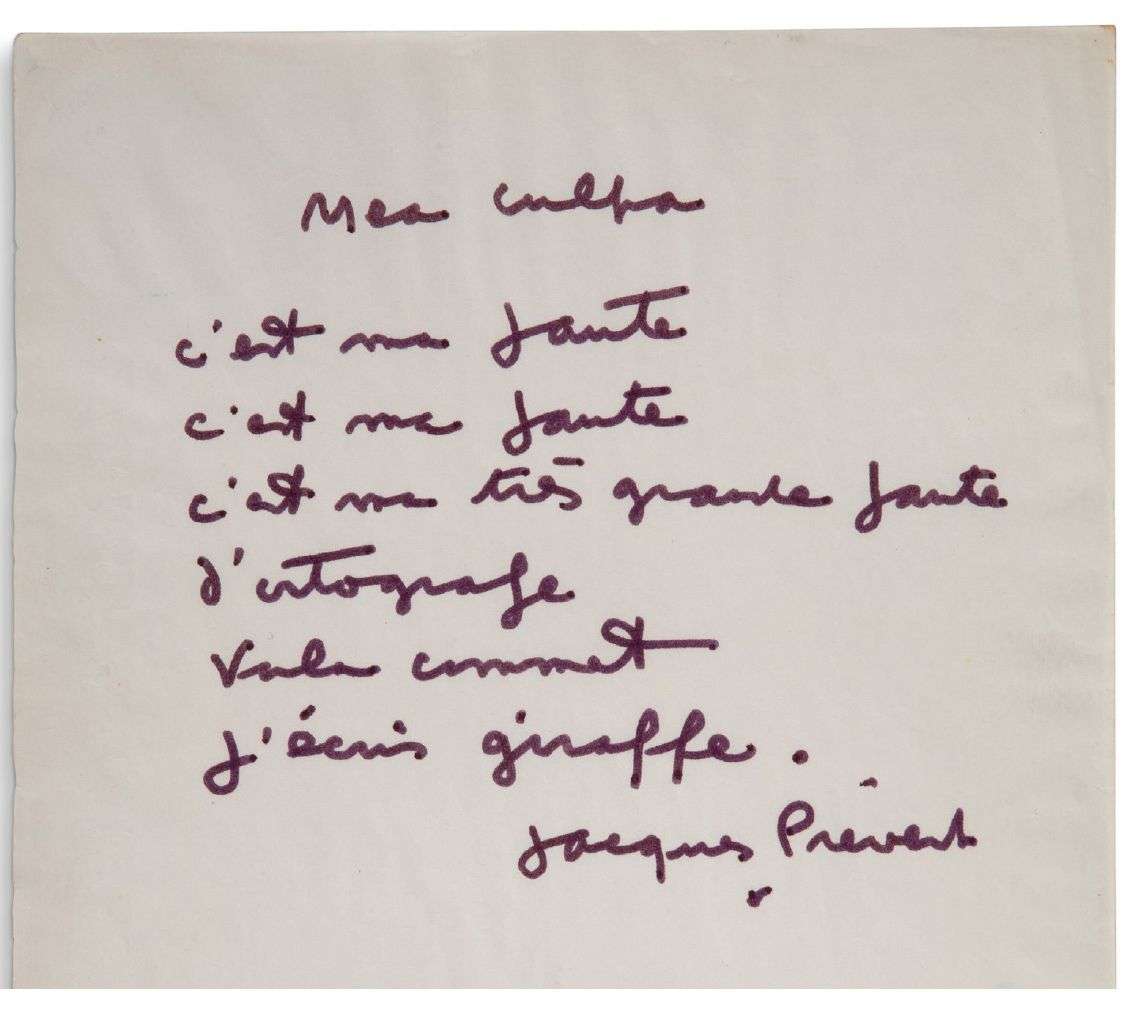 Mea culpa
c'est ma faute
c'est ma faute
c'est ma très grande faute
d'ortografe
Voila commet
j'écris giraffe.
Jacques Prévert